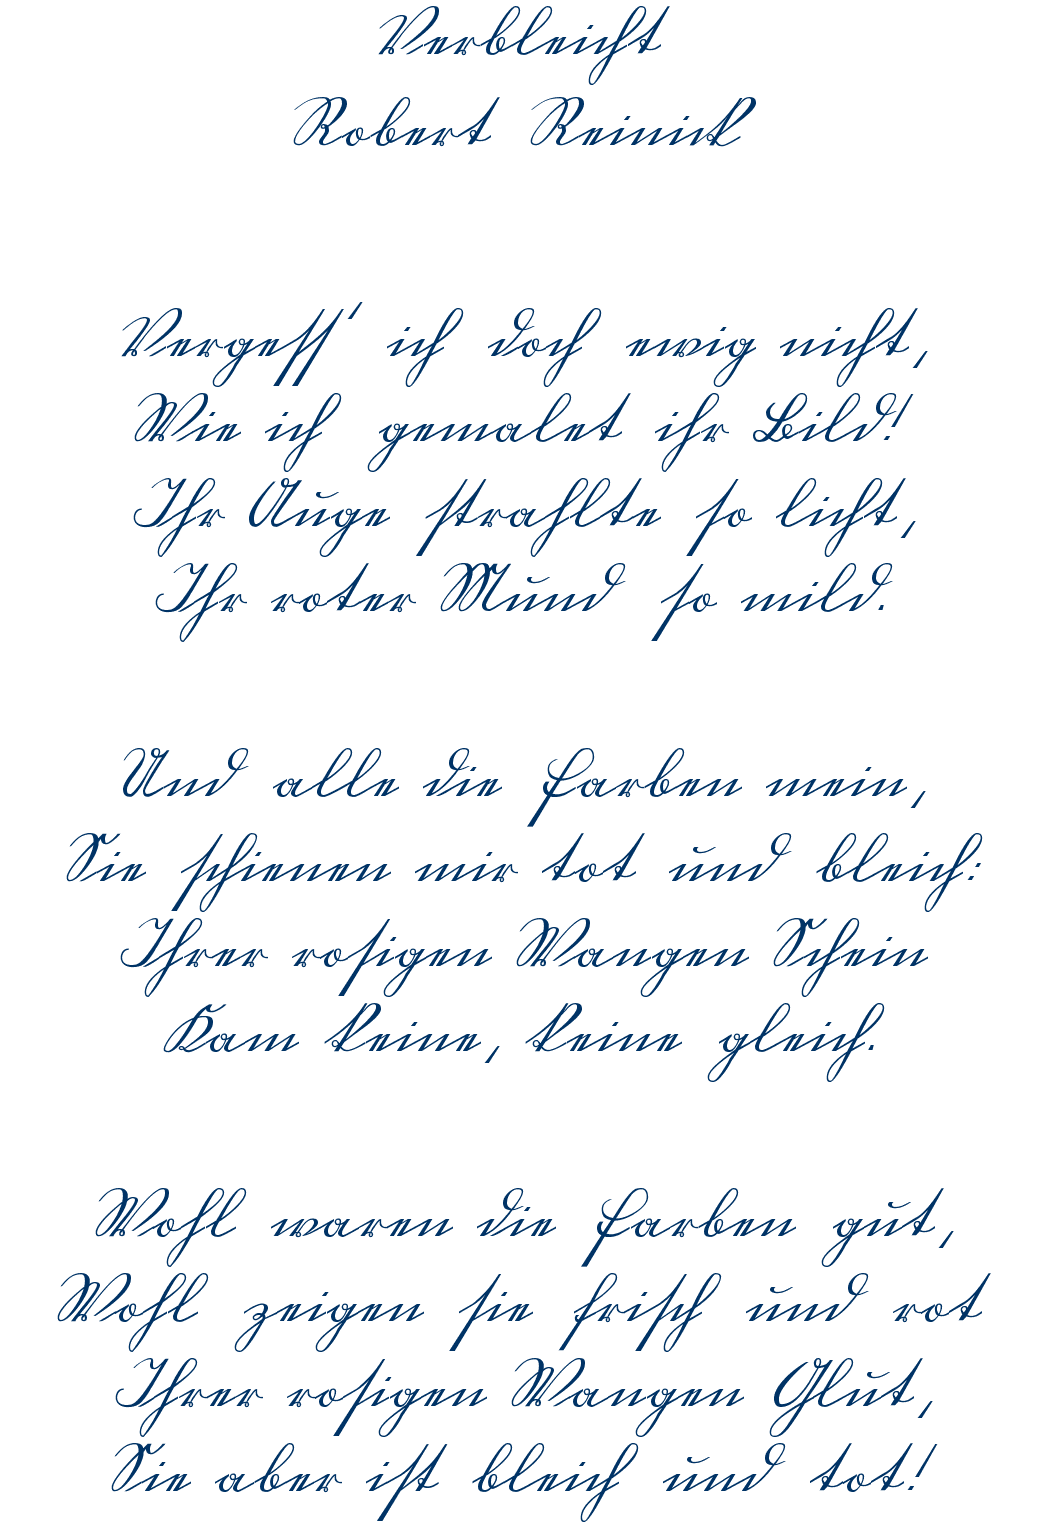 Verbleicht
Robert Reinick
Vergess' ich doch ewig nicht,
Wie ich gemalet ihr Bild!
Ihr Auge strahlte so licht,
Ihr roter Mund so mild.
Und alle die Farben mein,
Sie schienen mir tot und bleich:
Ihrer rosigen Wangen Schein
Kam keine, keine gleich.
Wohl waren die Farben gut,
Wohl zeigen sie frisch und rot
Ihrer rosigen Wangen Glut,
Sie aber ist bleich und tot!